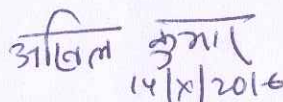 अनिल कुमार
14/X/2016